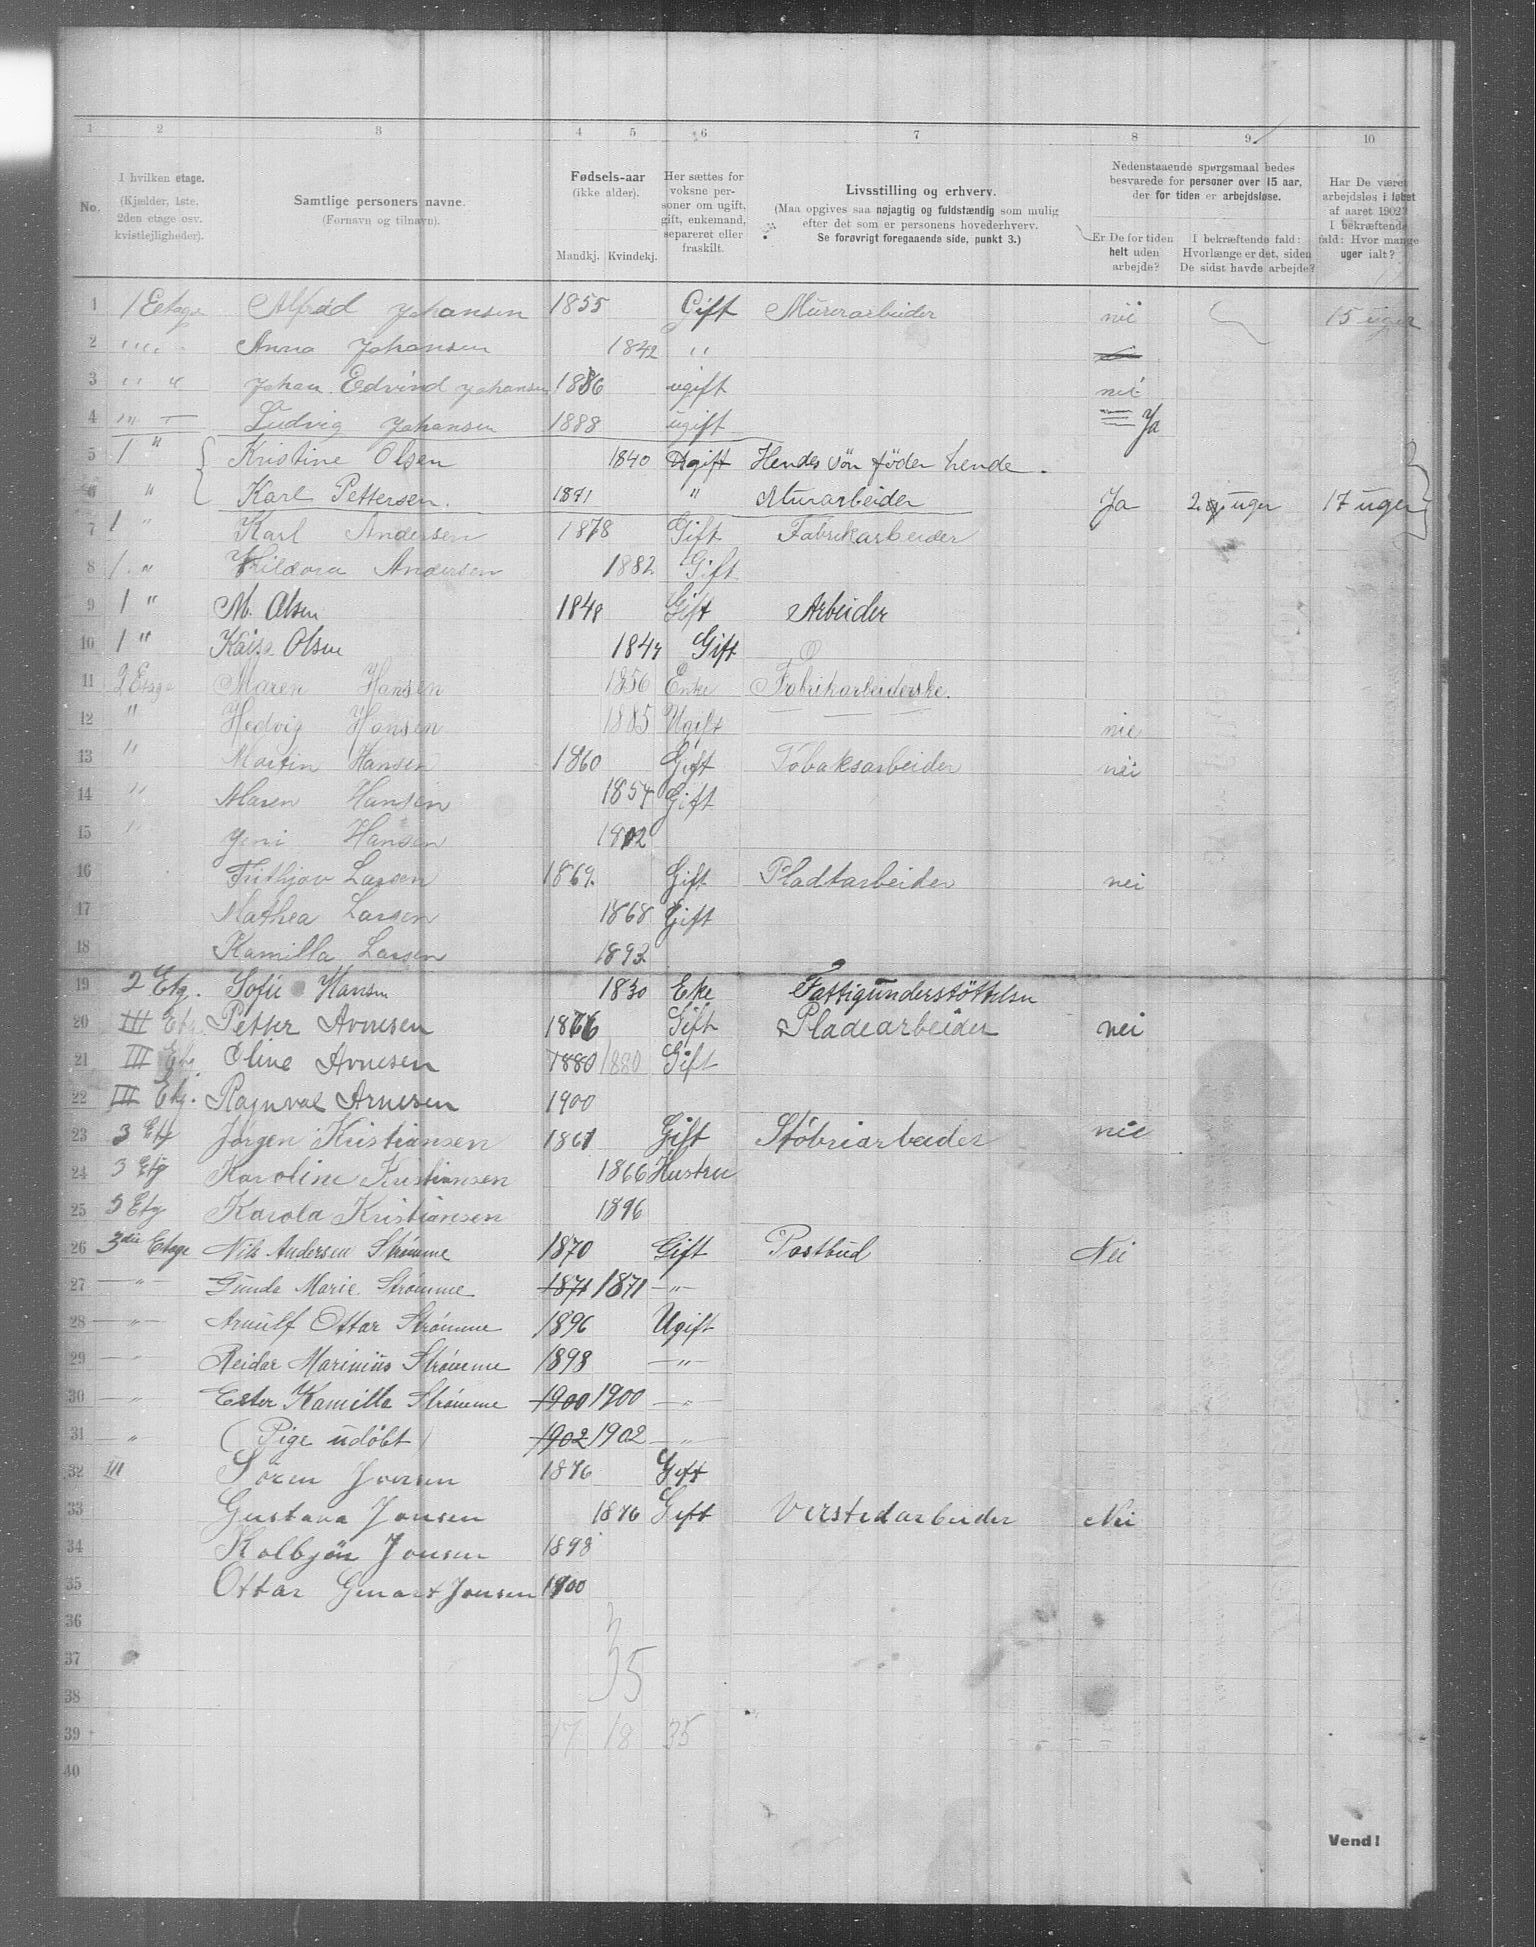 1 2 3 4 5 6 7 8 9 10
No. I hvilken etage. (Kjælder, 1ste, 2den etage osv. kvistlejligheder). Samtlige personers navne. (Fornavn og tilnavn). Fødsels-aar (ikke alder). Mandkj. Kvindekj. Her sættes for voksne personer om ugift, gift, enkemand, separeret eller fraskilt. Livsstilling og erhverv. (Maa opgives saa nøjagtig og fuldstændig som mulig efter det som er personens hovederhverv. Se forøvrigt foregaaende side, punkt 3.) Nedenstaaende spørgsmaal bedes besvarede for personer over 15 aar, der for tiden er arbejdsløse. Er De for tiden helt uden arbejde? I bekræftende fald: Hvorlænge er det, siden De sidst havde arbejde? Har De været arbejdsløs i løbet af aaret 1902? I bekræftende fald: Hvor mange uger ialt?
1 1 Eetage Alfred Johansen 1855 Gift Murerarbeider nei 15 uger
2 " " Anna Johansen 1842 "
3 " " Johan Edvind Johansen 1886 ugift nei
4 " Ludvig Johansen 1888 ugift Ja
5 1 " Kristine Olsen 1840 Ugift Hendes Sön föder hende.
6 " Karl Pettersen. 1871 " Murarbeider Ja 2 uger 17 uger
7 1 " Karl Andersen 1878 Gift Fabrikarbeider
8 1 " Andersen 1882 Gift
9 1 " M. Olsen 1848 Gift Arbeider
10 1 " Kaisa Olsen 1847 Gift 0
11 2 Etage Maren Hansen 1856 Enke Fabrikarbeiderske.
12 " Hedvig Hansen 1885 Ugift nie
13 " Martin Hansen 1860 Gift Tobaksarbeider nei
14 " Maren Hansen 1857 Gift
15 " Jeni Hansen 1902
16 Fridtjov Larsen 1869. Gift Pladtarbeider nei
17 Mathea Larsen 1868 Gift
18 Kamilla Larsen 1892
19 2 Etg. Sofie Hansen 1830 Eke Fattigunderstöttelse
20 III Etg. Petter Arnesen 1876 Gift Pladearbeider nei
21 III Etg. Eline Arnesen 1880 1880 Gift
22 III Etg. Ragnval Arnesen 1900
23 3 Etg Jörgen Kristiansen 1861 Gift Stöbriarbeider nie
24 3 Etg Karoline Kristiansen 1866 Hustru
25 3 Etg Karola Kristiansen 1896
26 3die Etage Nils Andersen Strømme 1870 Gift Postbud Nei
27 " Gunda Marie Strømme 1871 1871 "
28 " Arnulf Ottar Strømme 1896 Ugift
29 " Reidar Marinius Strømme 1898 "
30 " Ester Kamilla Strømme 1900 1900 "
31 " (Pige udöbt) 1902 1902 "
32 III Sören Jonsen 1876 Gift
33 Gustava Jonsen 1876 Gift Verstedarbeider Nei
34 Kolbjön Jonsen 1898
35 Ottar Jonsen 1900
36
37 35
38
39 17 18 35
40
Vend!